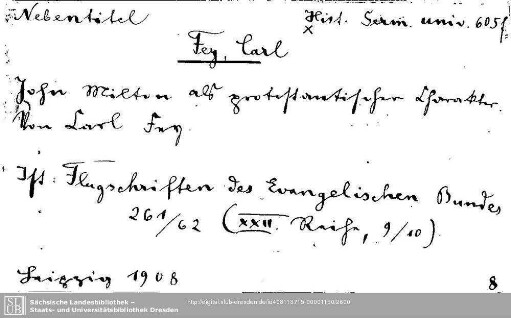 Nebentitel
Hist. Germ. univ. 605f
x
Fey, Carl
John Milton als protestantischer Charakter.
Von Carl Fey
Ist: Flugschriften des Evangelischen Bundes
261/62 (XXII. Reihe, 9/10).
Leipzig 1908
8
SLUB
Sächsische Landesbibliothek –
Staats- und Universitätsbibliothek Dresden